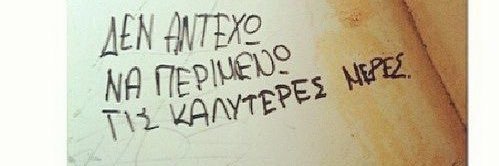 ΔΕΝ ΑΝΤΕΧΩ
ΝΑ ΠΕΡΙΜΕΝΩ
ΤΙΣ ΚΑΛΥΤΕΡΕΣ ΜΕΡΕΣ.